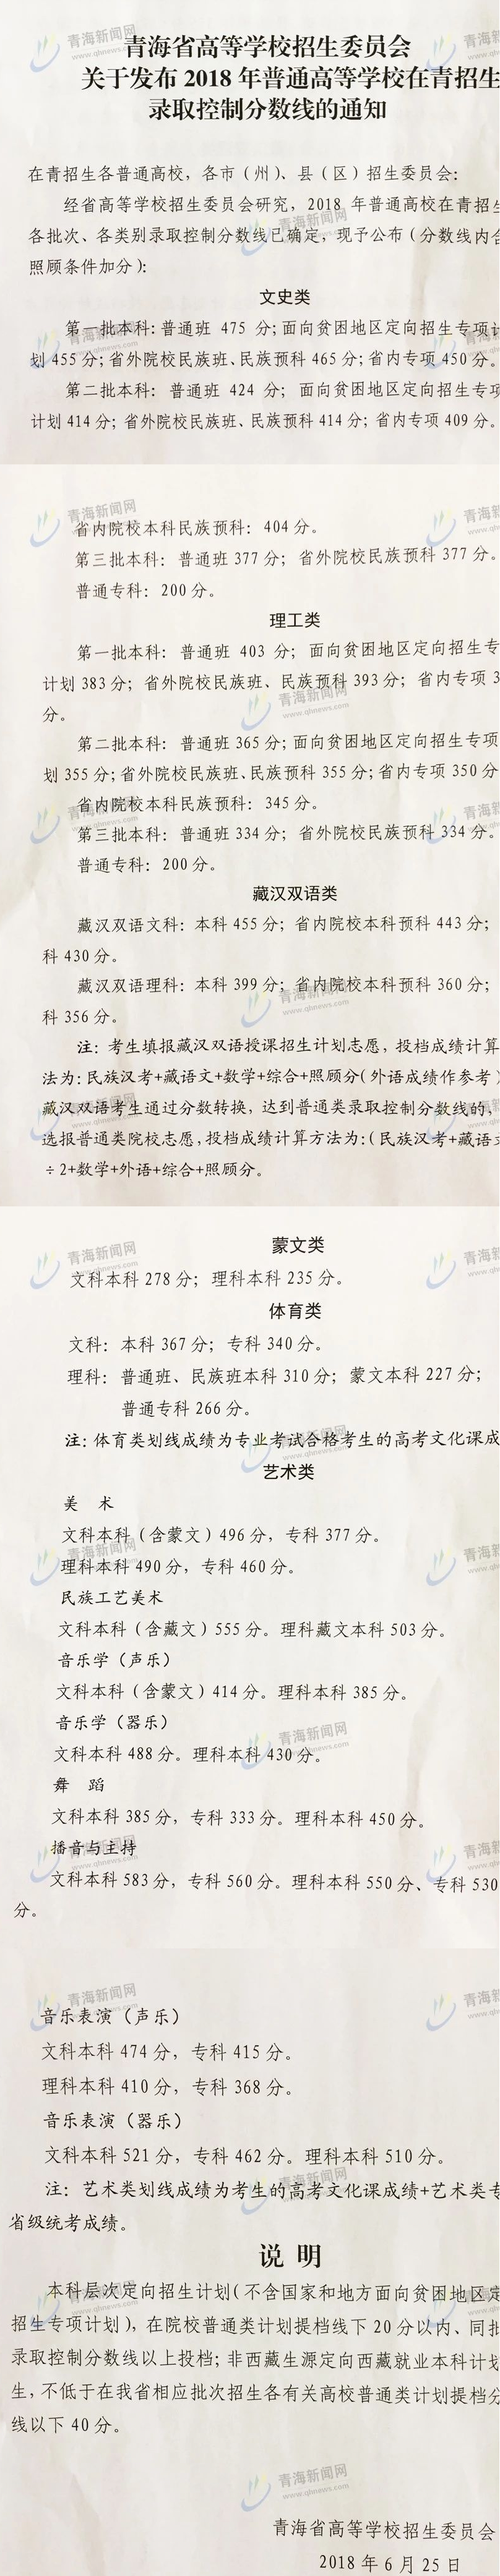 青海省高等学校招生委员会
关于发布 2018 年普通高等学校在青招生
录取控制分数线的通知
在青招生各普通高校，各市（州）、县（区）招生委员会：
经省高等学校招生委员会研究，2018 年普通高校在青招生
各批次、各类别录取控制分数线已确定，现予公布（分数线内含
照顾条件加分）：
文史类
第一批本科：普通班 475 分；面向贫困地区定向招生专项计
划 455 分；省外院校民族班、民族预科 465 分；省内专项 450 分。
第二批本科：普通班 424 分；面向贫困地区定向招生专项
计划 414 分；省外院校民族班、民族预科 414 分；省内专项 409 分。
省内院校本科民族预科：404 分。
第三批本科：普通班 377 分；省外院校民族预科 377 分。
普通专科：200 分。
理工类
第一批本科：普通班 403 分；面向贫困地区定向招生专
计划 383 分；省外院校民族班、民族预科 393 分；省内专项 3
分。
第二批本科：普通班 365 分；面向贫困地区定向招生专项
划 355 分；省外院校民族班、民族预科 355 分；省内专项 350 分
省内院校本科民族预科：345 分。
第三批本科：普通班 334 分；省外院校民族预科 334 分。
普通专科：200 分。
藏汉双语类
藏汉双语文科：本科 455 分；省内院校本科预科 443 分；
科 430 分。
藏汉双语理科：本科 399 分；省内院校本科预科 360 分；
科 356 分。
注：考生填报藏汉双语授课招生计划志愿，投档成绩计算
法为：民族汉考+藏语文+数学+综合+照顾分（外语成绩作参考）
藏汉双语考生通过分数转换，达到普通类录取控制分数线的，
选报普通类院校志愿，投档成绩计算方法为：（民族汉考+藏语文
÷2+数学+外语+综合+照顾分。
蒙文类
文科本科 278 分；理科本科 235 分。
体育类
文科：本科 367 分；专科 340 分。
理科：普通班、民族班本科 310 分；蒙文本科 227 分；
普通专科 266 分。
注：体育类划线成绩为专业考试合格考生的高考文化课成
艺术类
美 术
文科本科（含蒙文）496 分，专科 377 分。
理科本科 490 分，专科 460 分。
民族工艺美术
文科本科（含藏文）555 分。理科藏文本科 503 分。
音乐学（声乐）
文科本科（含蒙文）414 分。理科本科 385 分。
音乐学（器乐）
文科本科 488 分。理科本科 430 分。
舞 蹈
文科本科 385 分，专科 333 分。理科本科 450 分。
播音与主持
文科本科 583 分，专科 560 分。理科本科 550 分、专科 530
分。
音乐表演（声乐）
文科本科 474 分，专科 415 分。
理科本科 410 分，专科 368 分。
音乐表演（器乐）
文科本科 521 分，专科 462 分。理科本科 510 分。
注：艺术类划线成绩为考生的高考文化课成绩+艺术类专
省级统考成绩。
说 明
本科层次定向招生计划（不含国家和地方面向贫困地区定
招生专项计划），在院校普通类计划提档线下 20 分以内、同批
录取控制分数线以上投档；非西藏生源定向西藏就业本科计划
生，不低于在我省相应批次招生各有关高校普通类计划提档分
线以下 40 分。
青海省高等学校招生委员会
2018 年 6 月 25 日
青海新闻网
www.qhnews.com